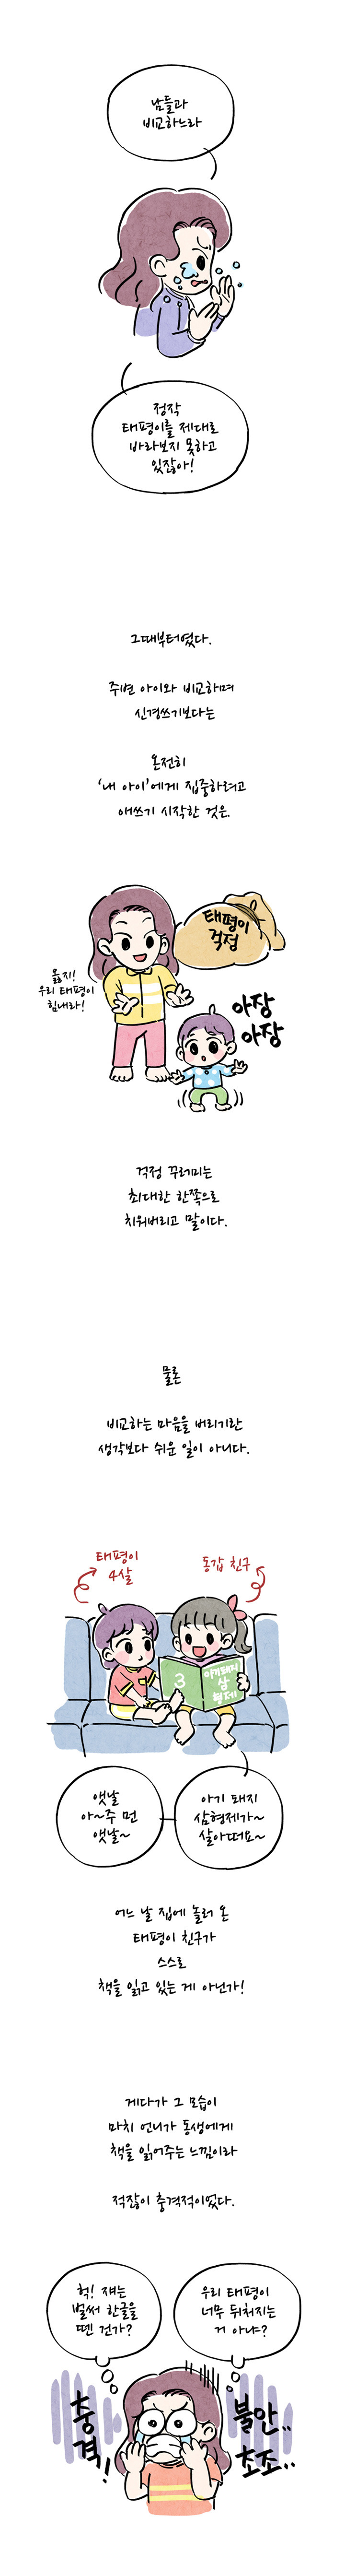 남들과
비교하느라
정작
태평이를 제대로
바라보지 못하고
있잖아!
그때부터였다.
주변 아이와 비교하며
신경쓰기보다는
온전히
'내 아이'에게 집중하려고
애쓰기 시작한 것은.
태평이
걱정
옳지!
우리 태평이
힘내라!
아장
아장
걱정 꾸러미는
최대한 한쪽으로
치워버리고 말이다.
물론
비교하는 마음을 버리기란
생각보다 쉬운 일이 아니다.
태평이
4살
동갑 친구
3
아기돼지
삼
형제
옛날
아~주 먼
옛날~
아기 돼지
삼형제가~
살아떠요~
어느 날 집에 놀러 온
태평이 친구가
스스로
책을 읽고 있는 게 아닌가!
게다가 그 모습이
마치 언니가 동생에게
책을 읽어주는 느낌이라
적잖이 충격적이었다.
헉! 쟤는
벌써 한글을
뗀 건가?
우리 태평이
너무 뒤처지는
거 아냐?
충
격!
불안..
초조...